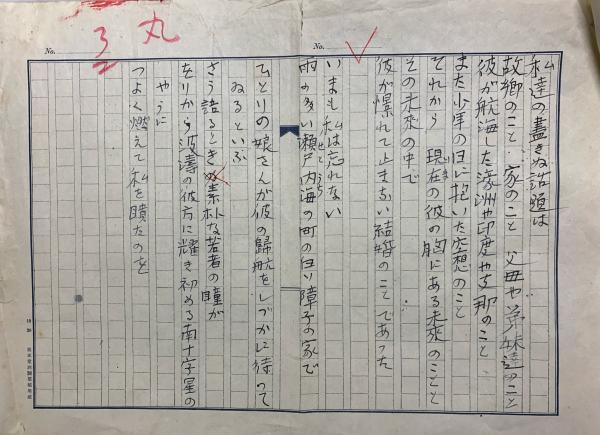 3 丸
No.
No.
私達の蓋きぬ話題は
故郷のこと 家のこと 父母や弟妹達のこと
彼が航海した濠洲や印度や支那のこと
また少年の日に抱いた空想のこと
それから 現在の彼の胸にある未來のことと
その未來の中で
彼が憬れて止まない結婚のことであった
いまも私は忘れない
雨の多い瀬戸内海の町の白い障子の家で
せとうち
ひとりの娘さんが彼の歸航をしづかに待って
ゐるといふ
さう語るとき素朴な若者の瞳が
をりから波濤の彼方に耀き初める南十字星の
やうに
つよく燃えて私を瞶たのを